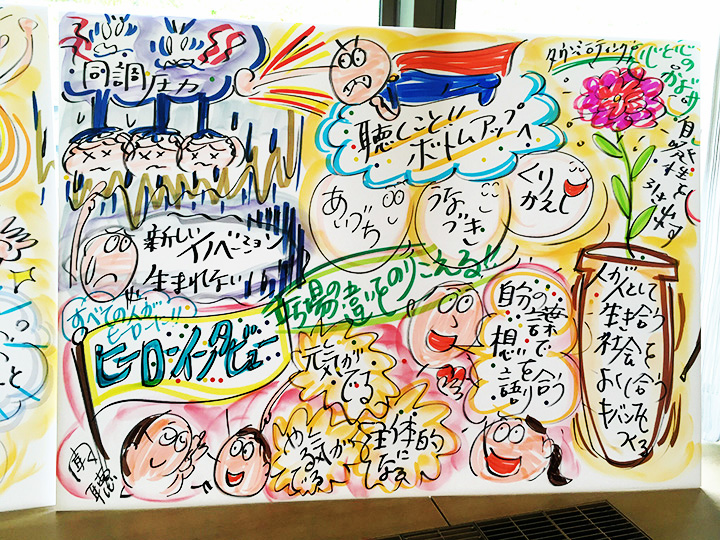 同調圧力
新しいイノベーション
生まれない
聴くこと!!
ボトムアップへ
あいづち
うなづき
くり
かえし
タウンミーティング
心と心の
自発性を
引き出す
立場の違いをのりこえる!!
すべての人が
ヒーローに!!
ヒーローインタビュー
元気が
でる
やる気が
でる
主体的
になる
聞く
聴
自分の
言葉で
想いを
語り合う
人が人として
生き合う
社会を
よくし合う
キバンを
つくる
と